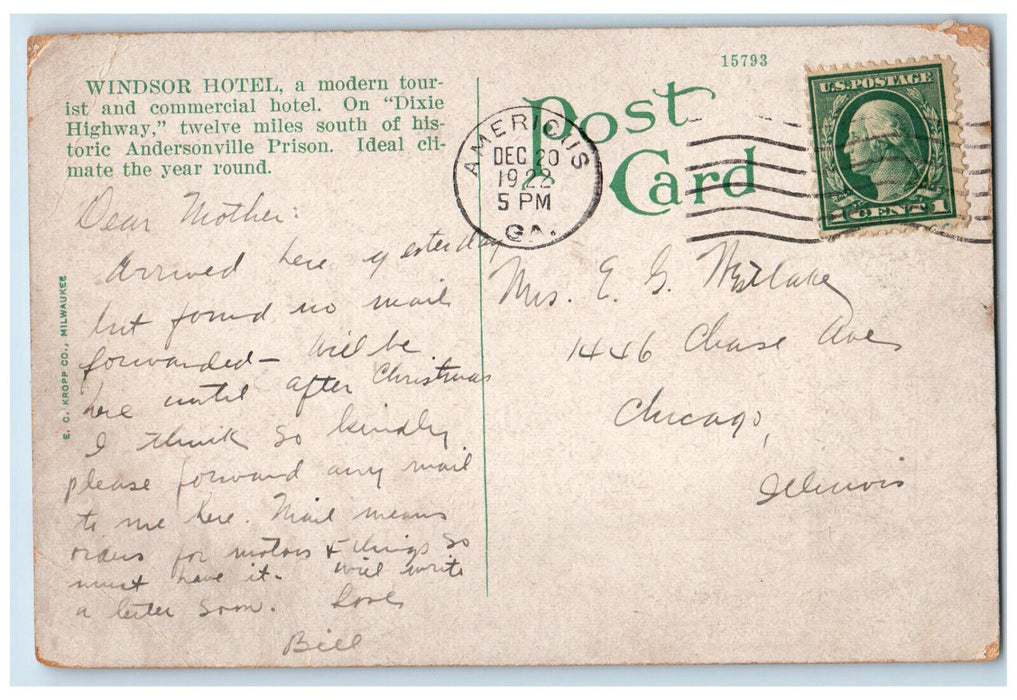 15793
WINDSOR HOTEL, a modern tour-
ist and commercial hotel. On "Dixie
Highway," twelve miles south of his-
toric Andersonville Prison. Ideal cli-
mate the year round.
Post
Card
AMERICUS
DEC 20
1922
5 PM
GA.
U.S. POSTAGE
1 CENT 1
Dear Mother:
Arrived here yesterday
but found no mail
forwarded – Will be
here until after Christmas
I think so kindly
please forward any mail
to me here. Mail means
orders for motors & things so
must have it. Will write
a letter soon. Love
Bill
Mrs. E. G. Westlake
1446 Chase Ave
Chicago,
Illinois
E. C. KROPP CO., MILWAUKEE